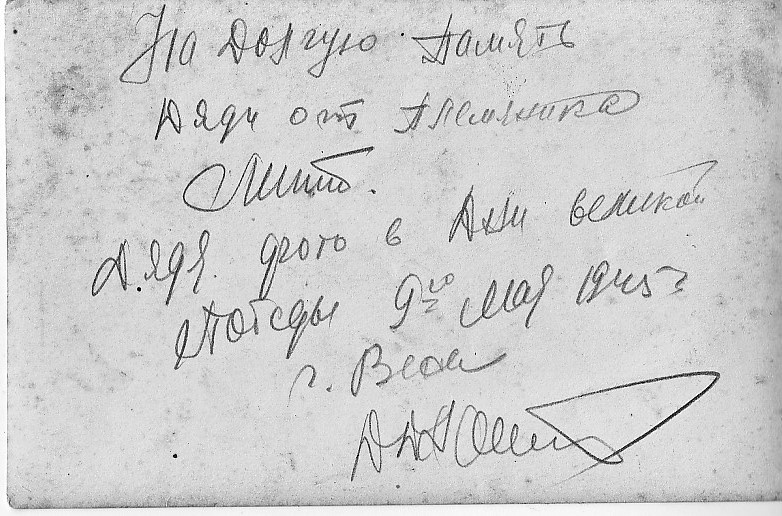 На долгую память
Дяди от племяника
Дядя. фото в Дни великой
Победы 9го Мая 1945 г
г.